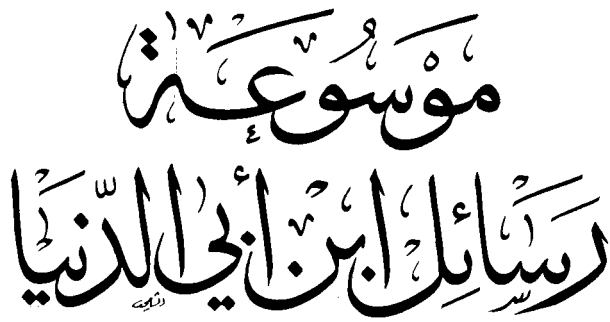 مَوْسُوعَة
رَسَائِل ابْن أَبي الدّنيَا